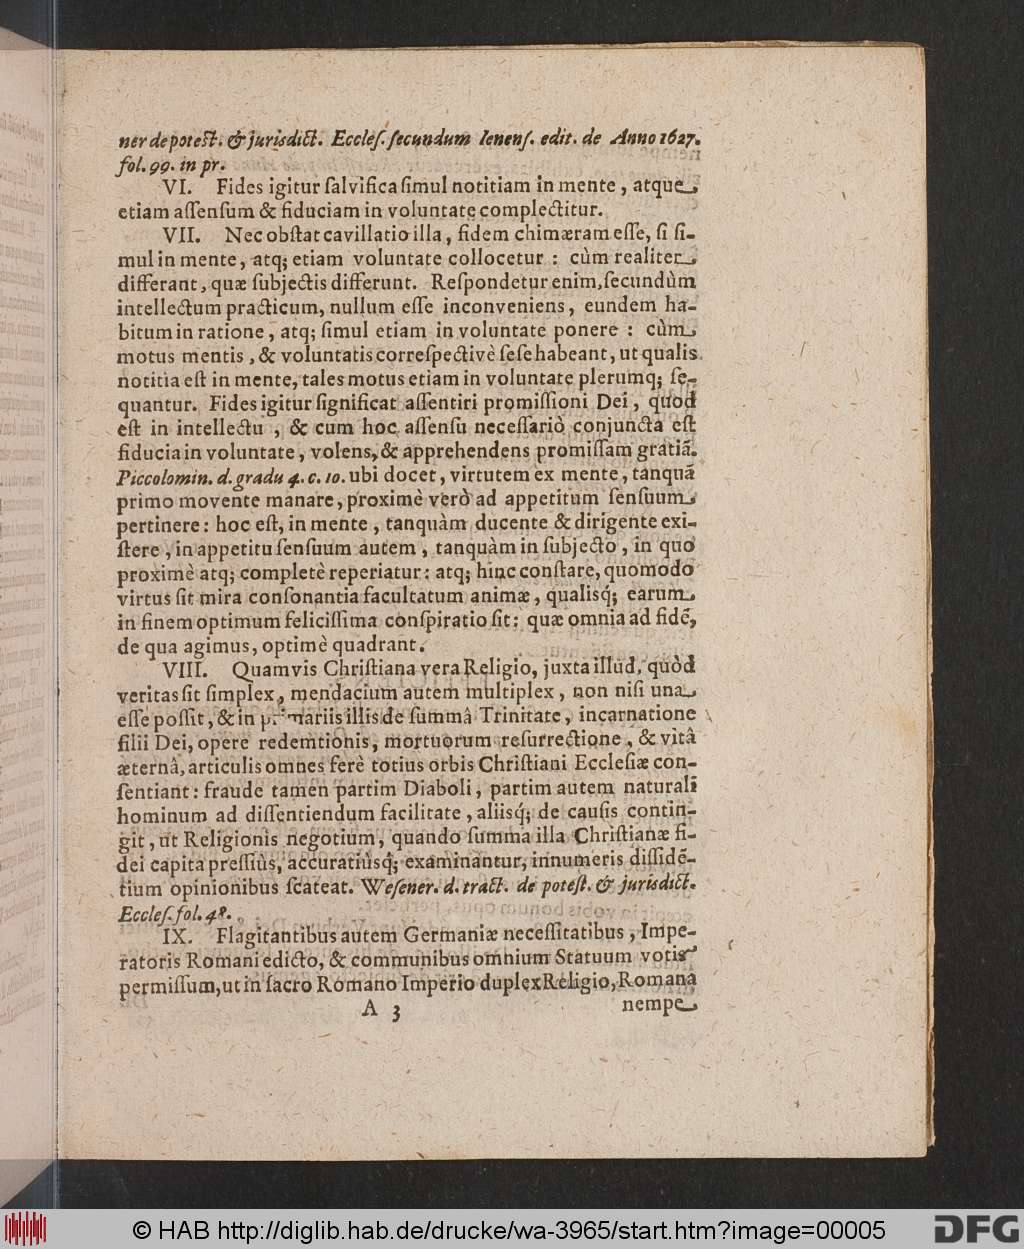 ner de potest. & jurisdict. Eccles. ſecundum Ienenſ. edit. de Anno 1627.
fol. 99. in pr.
VI. Fides igitur ſalvifica ſimul notitiam in mente, atque
etiam aſſenſum & fiduciam in voluntate complectitur.
VII. Nec obſtat cavillatio illa, fidem chimæram eſſe, ſi ſi-
mul in mente, atq; etiam voluntate collocetur : cùm realiter
differant, quæ ſubjectis differunt. Reſpondetur enim, ſecundùm
intellectum practicum, nullum eſſe inconveniens, eundem ha-
bitum in ratione, atq; ſimul etiam in voluntate ponere : cùm
motus mentis, & voluntatis correſpectivè ſeſe habeant, ut qualis
notitia eſt in mente, tales motus etiam in voluntate plerumq; ſe-
quantur. Fides igitur ſignificat aſſentiri promiſſioni Dei, quod
eſt in intellectu, & cum hoc aſſenſu neceſſariò conjuncta eſt
fiducia in voluntate, volens, & apprehendens promiſſam gratiã.
Piccolomin. d. gradu 4. c. 10. ubi docet, virtutem ex mente, tanquã
primo movente manare, proximè verò ad appetitum ſenſuum
pertinere : hoc eſt, in mente, tanquàm ducente & dirigente exi-
ſtere, in appetitu ſenſuum autem, tanquàm in ſubjecto, in quo
proximè atq; completè reperiatur : atq; hinc conſtare, quomodo
virtus ſit mira conſonantia facultatum animæ, qualisq́; earum
in finem optimum feliciſſima conſpiratio ſit : quæ omnia ad fidẽ,
de qua agimus, optimè quadrant.
VIII. Quamvis Chriſtiana vera Religio, juxta illud, quòd
veritas ſit ſimplex, mendacium autem multiplex, non niſi una
eſſe poſſit, & in primariis illis de ſummâ Trinitate, incarnatione
filii Dei, opere redemtionis, mortuorum reſurrectione, & vitâ
æternâ, articulis omnes ferè totius orbis Chriſtiani Eccleſiæ con-
ſentiant : fraude tamen partim Diaboli, partim autem naturali
hominum ad diſſentiendum facilitate, aliisq́; de cauſis contin-
git, ut Religionis negotium, quando ſumma illa Chriſtianæ fi-
dei capita preſſiùs, accuratiùsq́; examinantur, innumeris diſſidẽ-
tium opinionibus ſcateat. Weſener. d. tract. de poteſt. & jurisdict.
Eccleſ. fol. 48.
IX. Flagitantibus autem Germaniæ neceſſitatibus, Impe-
ratoris Romani edicto, & communibus omnium Statuum votis
permiſſum, ut in ſacro Romano Imperio duplex Religio, Romana
A 3 nempe
© HAB http://diglib.hab.de/drucke/wa-3965/start.htm?image=00005
DFG